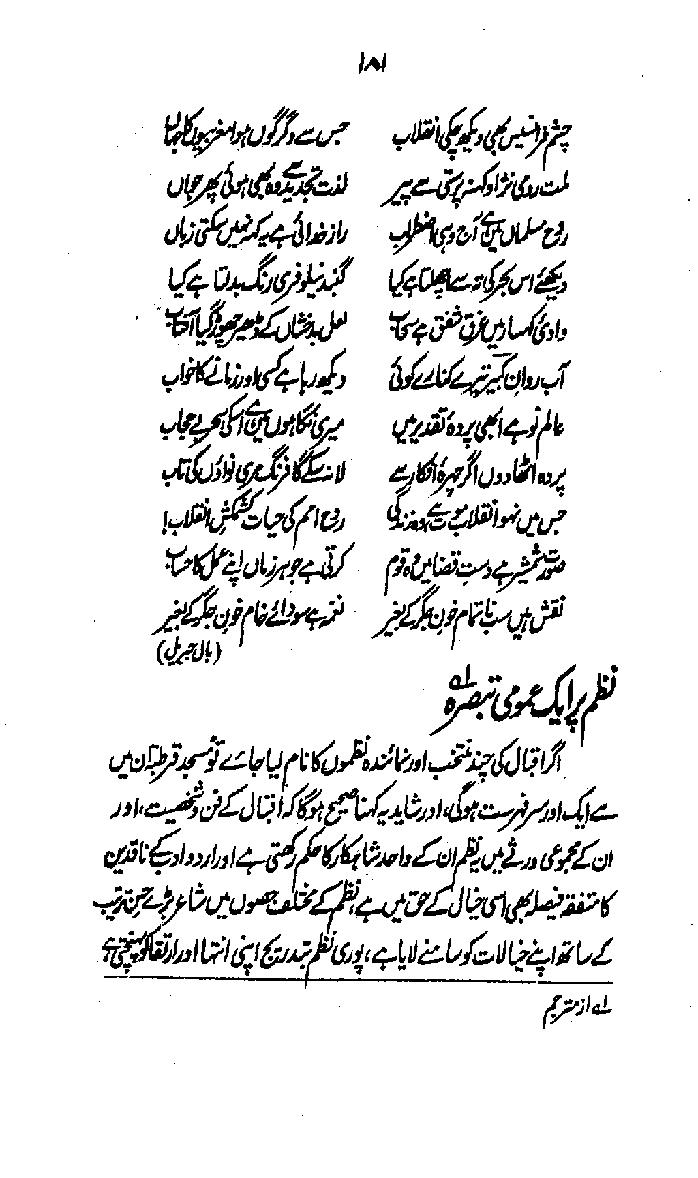 ۱۸۱
چشم فرانسیس بھی دیکھ چکی انقلاب جس سے دگرگوں ہوا مغربیوں کا جہاں
ملت رومی نژاد کہنہ پرستی سے پیر لذت تجدید سے وہ بھی ہوئی پھر جواں
روح مسلماں میں ہے آج وہی اضطراب راز خدائی ہے یہ کہہ نہیں سکتی زباں
دیکھئے اس بحر کی تہ سے اچھلتا ہے کیا گنبد نیلوفری رنگ بدلتا ہے کیا
وادئ کہسار میں غرق شفق ہے سحاب لعل بدخشاں کے ڈھیر چھوڑ گیا آفتاب
آب روان کبیر تیرے کنارے کوئی دیکھ رہا ہے کسی اور زمانے کا خواب
عالم نو ہے ابھی پردۂ تقدیر میں میری نگاہوں میں ہے اسکی سحر بے حجاب
پردہ اٹھا دوں اگر چہرۂ افکار سے لا نہ سکے گا فرنگ میری نواؤں کی تاب
جس میں نہ ہو انقلاب موت ہے وہ زندگی روح امم کی حیات کشمکش انقلاب!
صورت شمشیر ہے دست قضا میں وہ قوم کرتی ہے جو ہر زماں اپنے عمل کا حساب
نقش ہیں سب ناتمام خون جگر کے بغیر نغمہ ہے سودائے خام خون جگر کے بغیر
(بال جبریل)
نظم پر ایک عمومی تبصرہ ؎۱
اگر اقبال کی چند منتخب اور نمائندہ نظموں کا نام لیا جائے تو مسجد قرطبہ ان میں
سے ایک اور سر فہرست ہوگی، اور شاید یہ کہنا صحیح ہوگا کہ اقبال کے فن و شخصیت، اور
ان کے مجموعی ورثے میں یہ نظم ان کے واحد شاہکار کا حکم رکھتی ہے اور اردو ادب کے ناقدین
کا متفقہ فیصلہ بھی اسی خیال کے حق میں ہے، نظم کے مختلف حصوں میں شاعر بڑے حسن ترتیب
کے ساتھ اپنے خیالات کو سامنے لایا ہے، پوری نظم بتدریج اپنی انتہا اور ارتقا کو پہنچتی ہے
؎۱ از مترجم